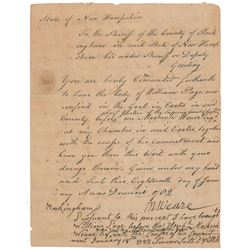 State of New Hampshire
To the Sheriff of the County of Rock
ingham in said State of New Hamp
shire his under Sheriff or Deputy
Greeting
You are hereby Commanded forthwith
to have the Body of William Page now
confined in the Goal in Exeter in said
County before me Meshech Weare Esqr
at my Chamber in said Exeter together
with the cause of his Commitment and
have you then this Writ with your
doings therein Given under my hand
and Seal this Eighteenth Day of January
Anno Domini 1782
Rockingham M Weare
Pursuant to this precept I have brought
William Page before the Meshech
Weare
January 18 1782 Simeon Ladd